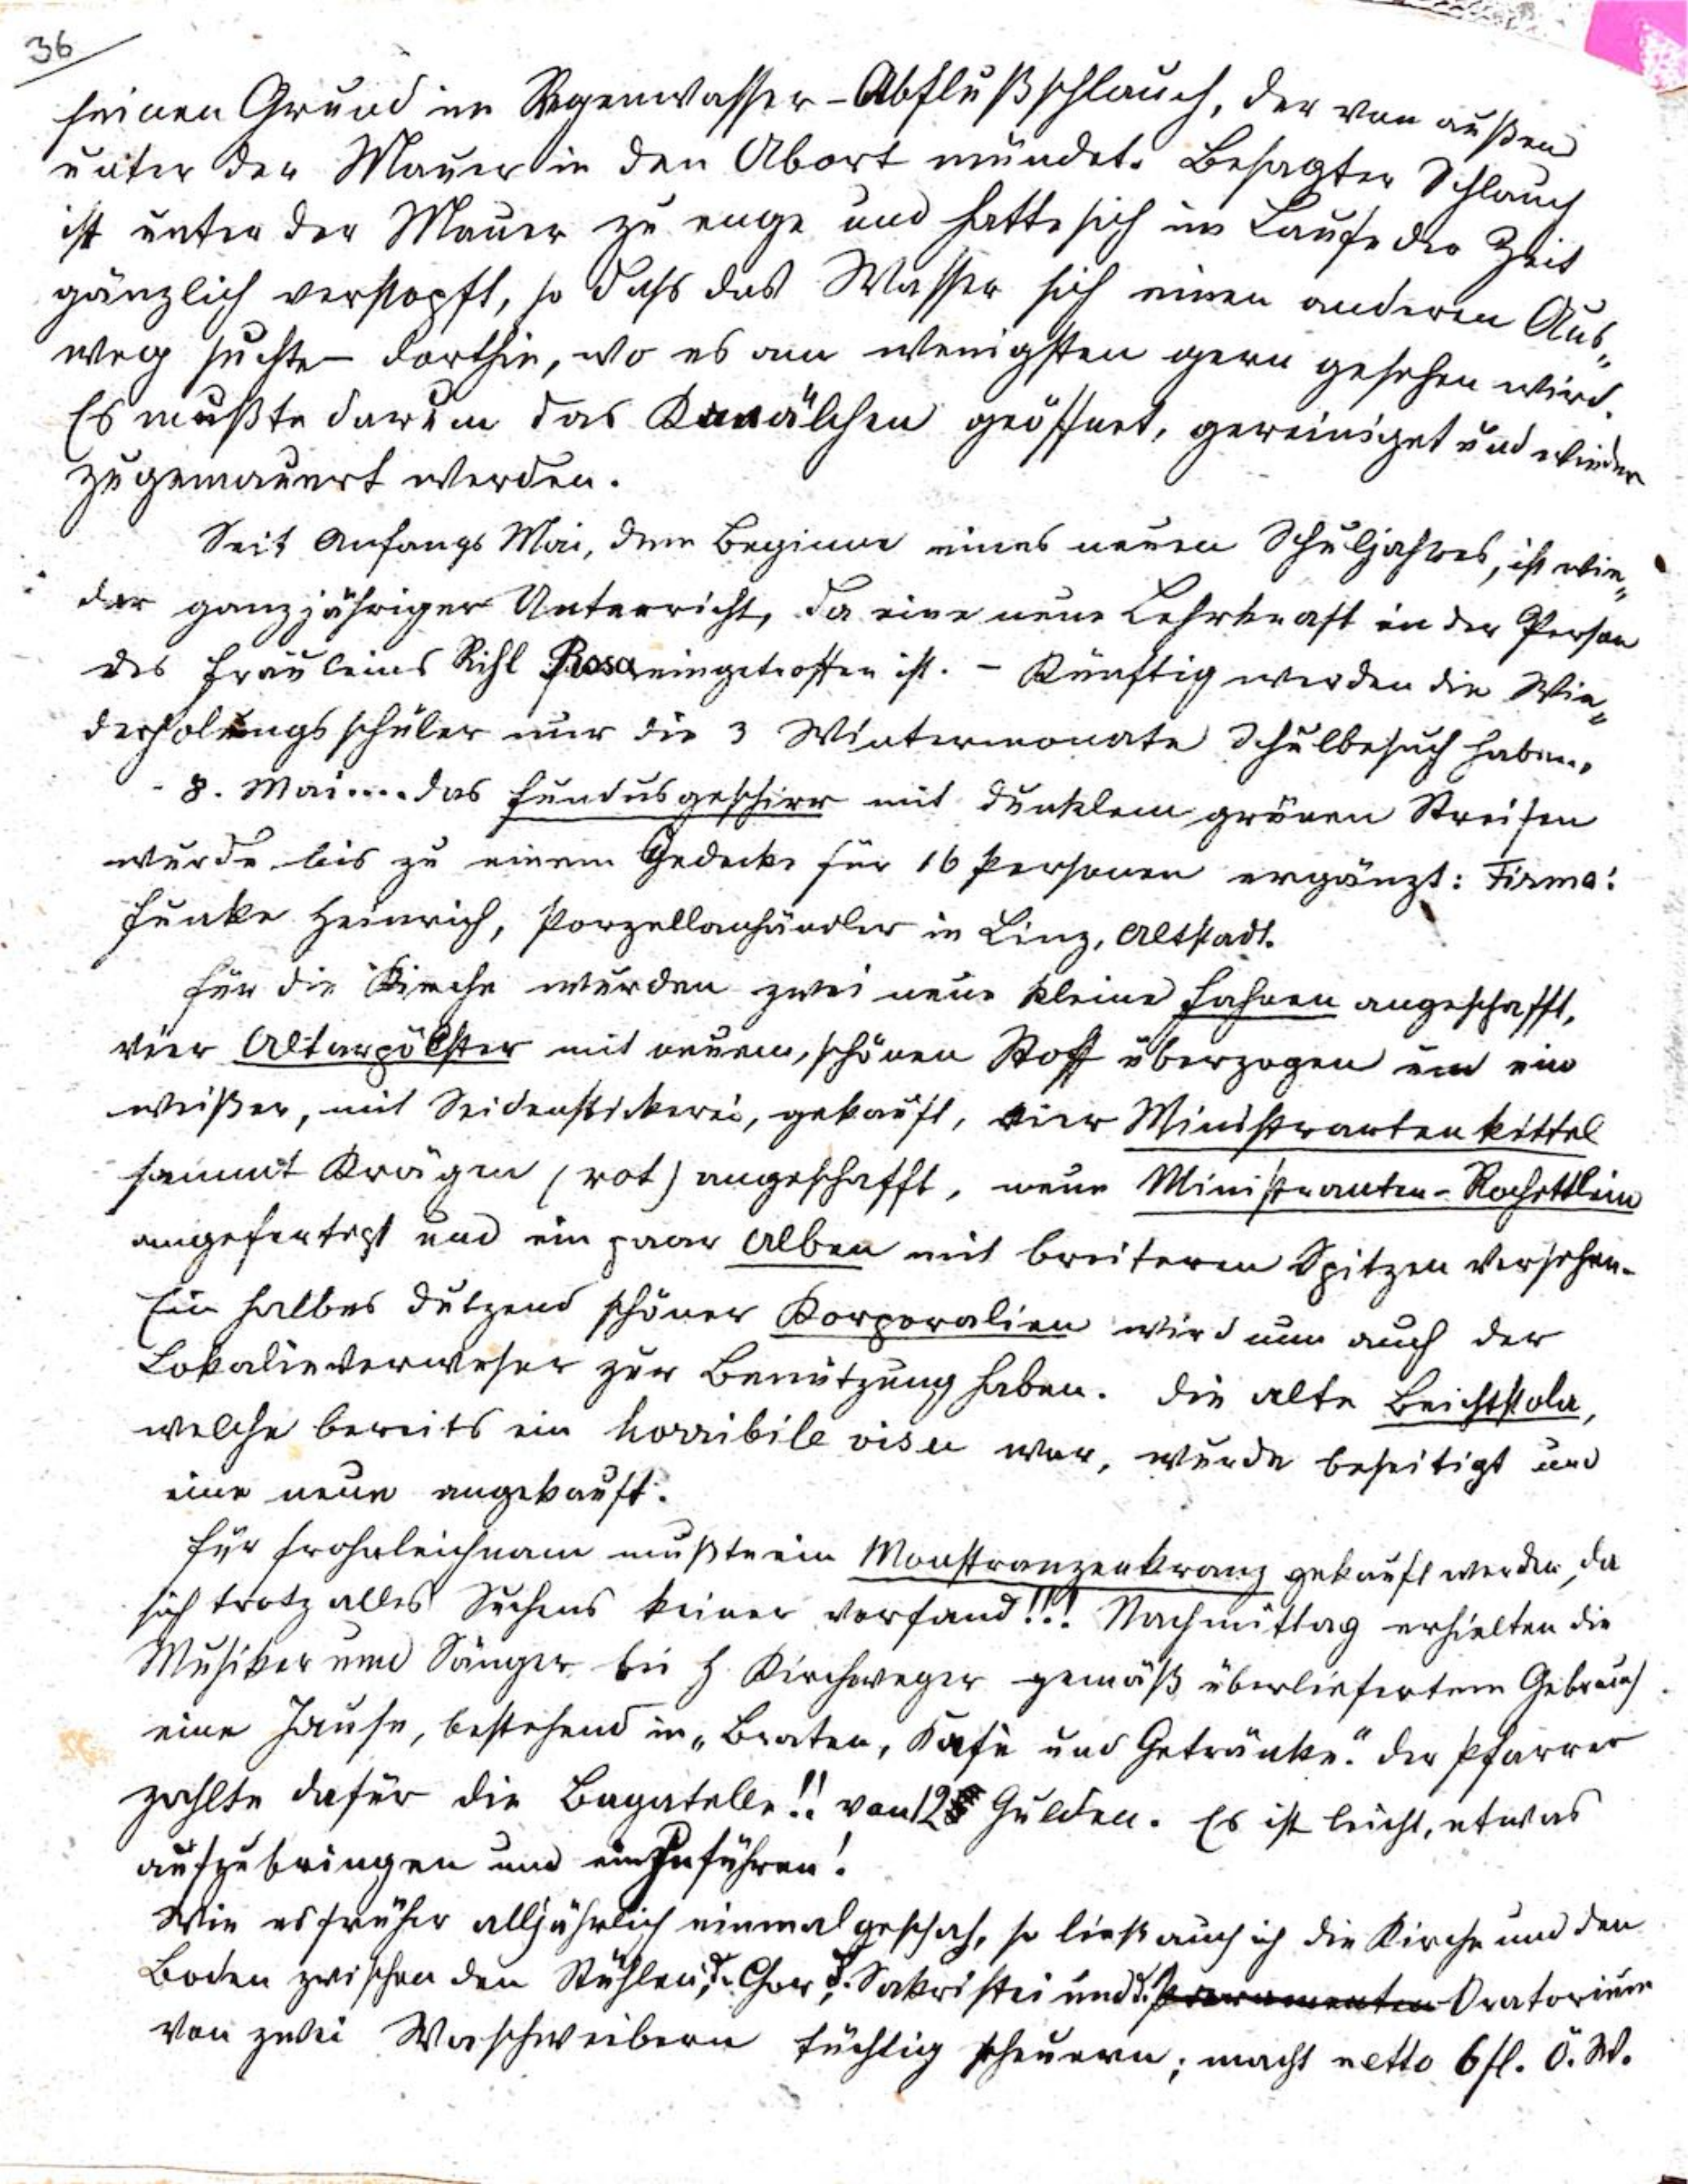 36
seinen Grund im Regenwasser-Abflußschlauch, der von außen
unter der Mauer in den Abort mündet. Besagter Schlauch
ist unter der Mauer zu enge und hatte sich im Laufe der Zeit
gänzlich verstopft, so daß das Wasser sich einen anderen Aus-
weg suchte – dorthin, wo es am wenigsten gern gesehen wird.
Es mußte darum das Kanälchen geöffnet, gereiniget und wieder
zugemauert werden.
Seit Anfangs Mai, dem Beginne eines neuen Schuljahres, ist wie-
der ganzjähriger Unterricht, da eine neue Lehrkraft in der Person
des Fräuleins Rihl Rosa eingetroffen ist. – Künftig werden die Wie-
derholungsschüler nur die 3 Wintermonate Schulbesuch haben.
8. Mai .... das Fundusgeschirr mit dunklem grünen Streifen
wurde bis zu einem Gedecke für 16 Personen ergänzt: Firma:
Funke Heinrich, Porzellanhändler in Linz, Altstadt.
Für die Kirche wurden zwei neue kleine Fahnen angeschafft,
vier Altarpölster mit neuem, schönen Stoff überzogen und ein
weißer, mit Seidenstickerei, gekauft, vier Ministrantenkittel
sammt Krägen (rot) angeschafft, neue Ministranten-Rochettlein
angefertigt und ein paar Alben mit breiteren Spitzen versehen.
Ein halbes Dutzend schöner Korporalien wird nun auch der
Lokalieverweser zur Benützung haben. Die alte Beichtstola,
welche bereits ein horribile visu war, wurde beseitigt und
eine neue angekauft.
Für Frohnleichnam mußte ein Monstranzenkranz gekauft werden, da
sich trotz alles Suchens keiner vorfand!!! Nachmittag erhielten die
Musiker und Sänger bei H. Kirchweger gemäß überliefertem Gebrauch
eine Jause, bestehend in „Braten, Kafè und Getränke." Der Pfarrer
zahlte dafür die Bagatelle!! von 12 Gulden. Es ist leicht, etwas
aufzubringen und einzuführen!
Wie es früher alljährlich einmal geschah, so ließ auch ich die Kirche und den
Boden zwischen den Stühlen, d. Chor, d. Sakristei und d. Paramenten Oratorium
von zwei Waschweibern tüchtig scheuern; macht netto 6 fl. Ö. W.